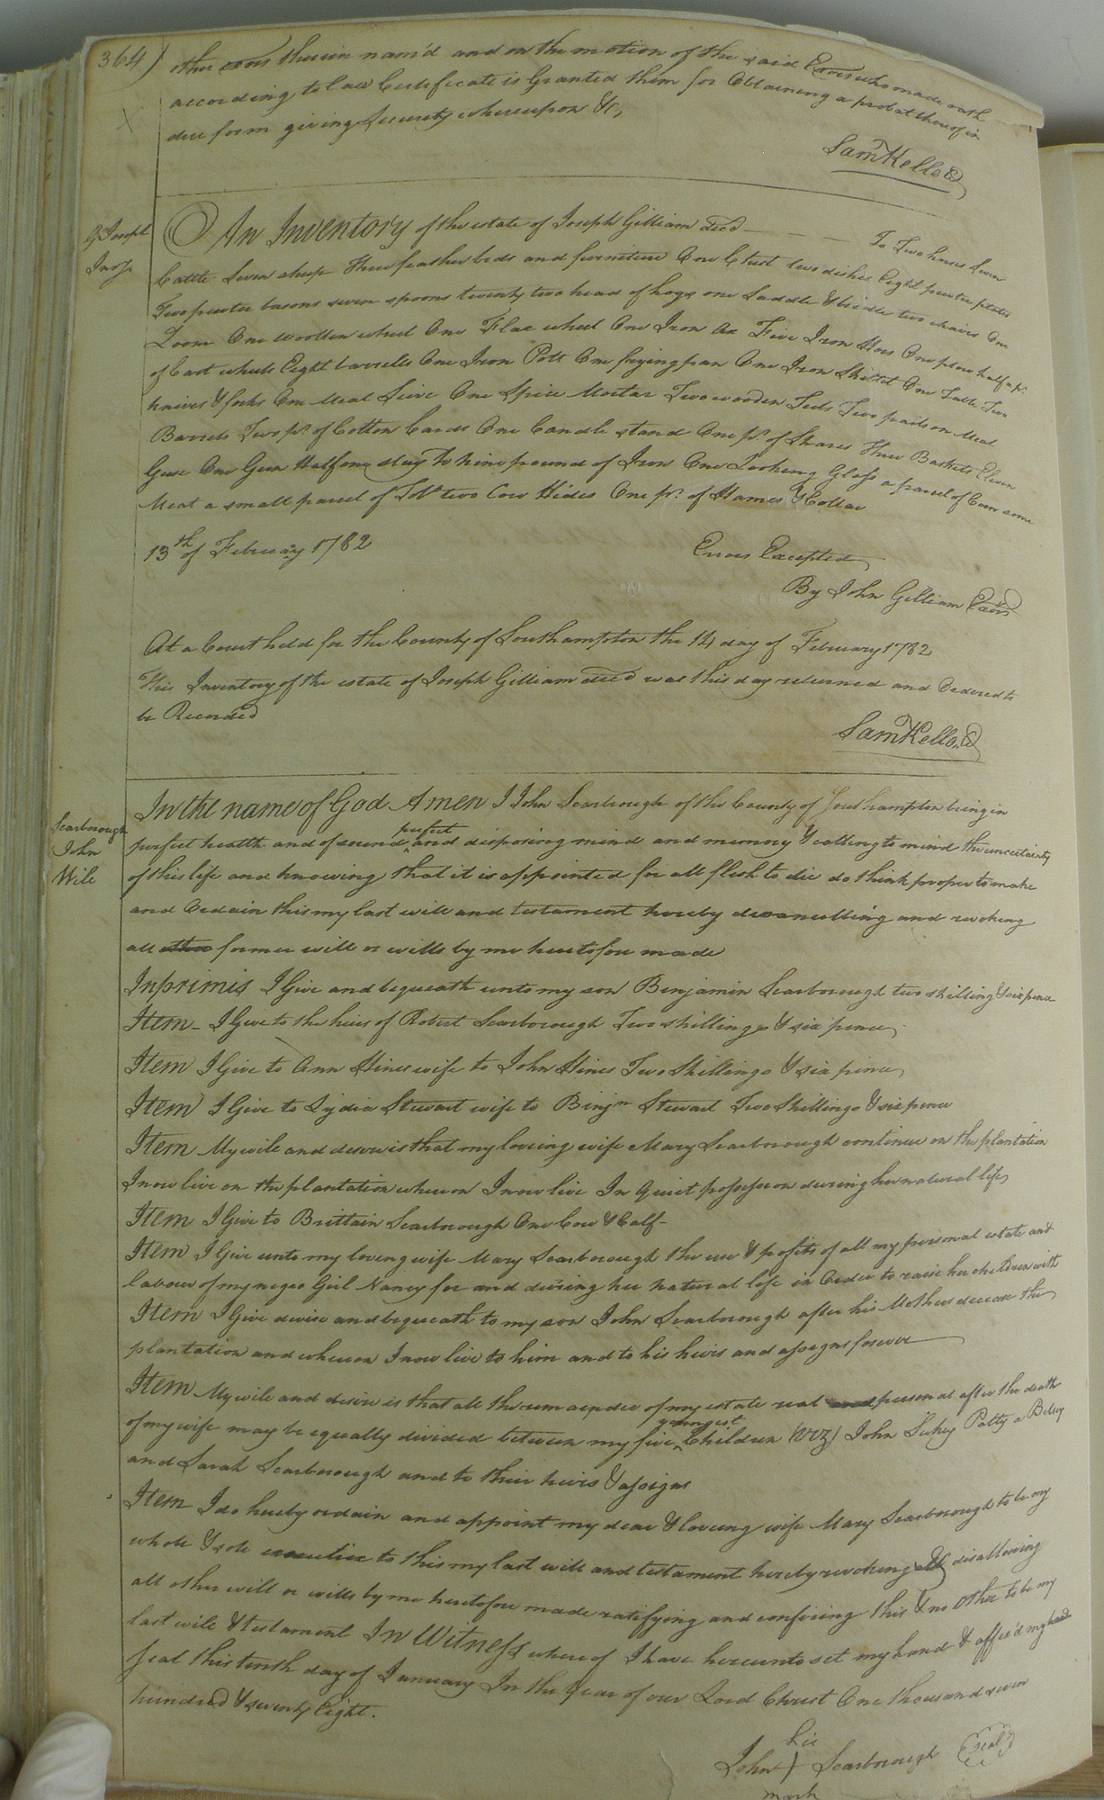 364)
other exors therein nam'd and on the motion of the said Exors who made oath
according to law Certificate is Granted them for Obtaining a probat thereof in
due form giving Security whereupon &c,
Sam Kello
G. Joseph
Invy
An Inventory of the estate of Joseph Gilliam deced To Two horses Seven
Cattle Seven sheep Three feather beds and furniture One Chest two dishes Eight pewter plates
Two pewter basons seven spoons twenty two head of hogs one Saddle & bridle two chairs One
Loom One woollen wheel One Flax wheel One Iron Ax Five Iron Hoes One plow half a pr.
of Cart wheels Eight barrells One Iron Pott One frying pan One Iron Skillet One Table Two
knives & forks One Meal Seive One Spice Mortar Two wooden Two pails on Meal
Barrels Two pr. of Cotton Cards One Candle stand One pr. of Shears Three Baskets Eleven
Geese One Gun Half one nine pound of Iron One Looking Glass a parcel of Corn some
Meat a small parcel of Tobo. two Cow Hides One pr. of Hames & Collar
13th of February 1782
Errors Excepted
By John Gilliam Exor
At a Court held for the County of Southampton the 14 day of February 1782
This Inventory of the estate of Joseph Gilliam deced was this day returned and Ordered to
be Recorded
Sam Kello
Scarborough
John
Will
In the name of God Amen I John Scarborough of the County of Southampton being in
perfect health and of sound perfect and disposing mind and memory & calling to mind the uncertainty
of this life and knowing that it is appointed for all flesh to die do think proper to make
and Ordain this my last will and testament hereby and revoking
all other former will or wills by me heretofore made
Inprimis I Give and bequeath unto my son Benjamin Scarborough two shilling & six pence
Item - I Give to the heirs of Robert Scarborough Two shillings & six pence,
Item I Give to Ann Hines wife to John Hines Two Shillings & six pence,
Item I Give to Lydia Stewart wife to Benjn Stewart Two Shillings & six pence
Item My will and desire is that my loving wife Mary Scarborough continue on the plantation
I now live on the plantation whereon I now live In Quiet possession during her natural life,
Item I Give to Brittain Scarborough One Cow & Calf-
Item I Give unto my loving wife Mary Scarborough the use & profits of all my personal estate and
labour of my negro Girl Nancy for and during her natural life in Order to raise her children with
Item I Give devise and bequeath to my son John Scarborough after his Mothers decease the
plantation and whereon I now live to him and to his heirs and assigns forever
Item My will and desire is that all the remainder of my estate real and personal after the death
of my wife may be equally divided between my five youngest Children (Viz) John Sukey Patty a Betsy
and Sarah Scarborough and to their heirs & assigns
Item I do hereby ordain and appoint my dear & loving wife Mary Scarborough to be my
whole & sole executrix to this my last will and testament hereby revoking & disallowing
all other will or wills by me heretofore made ratifying and confiring this & no other to be my
last will & testament In Witness whereof I have hereunto set my hand & affix'd my hand
seal this tenth day of January In the year of our Lord Christ One thousand seven
hundred & seventy Eight.
his
John ) Scarborough (seal)
mark